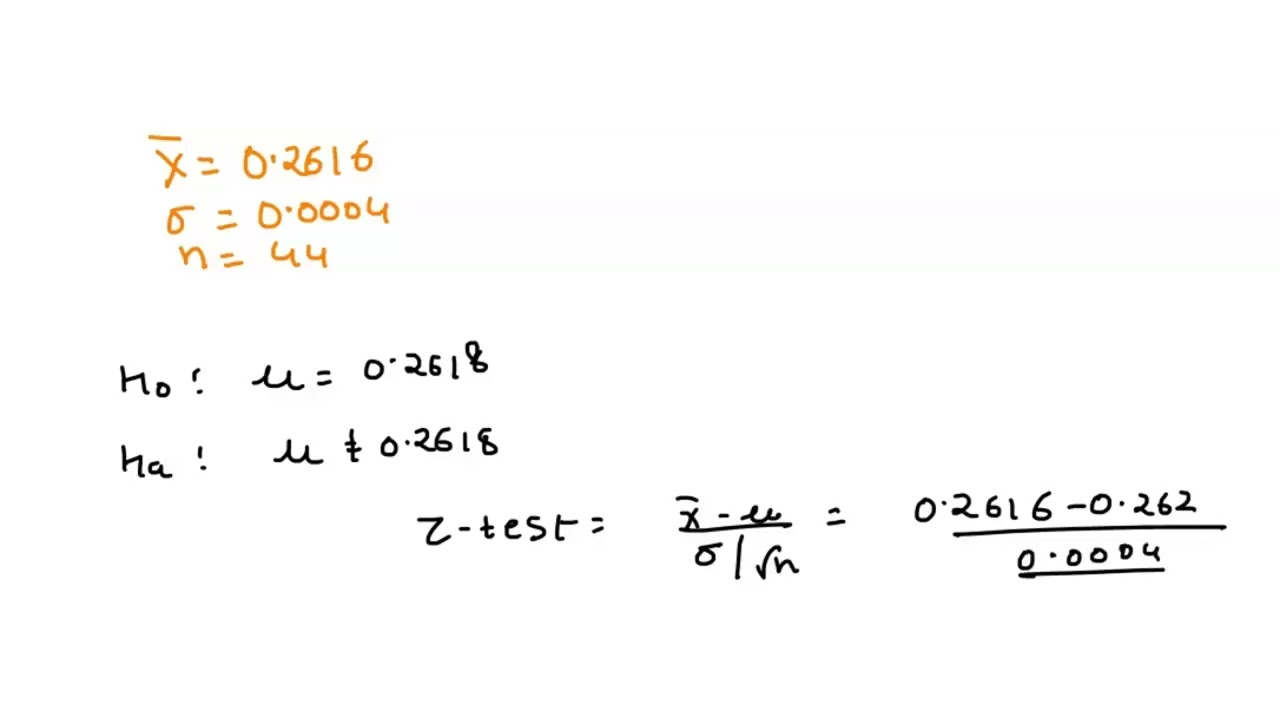 x̄ = 0.2616
σ = 0.0004
n = 44
H0: μ = 0.2618
Ha: μ ≠ 0.2618
z-test = (x̄ - μ)/(σ/√n) = (0.2616 - 0.262)/0.0004